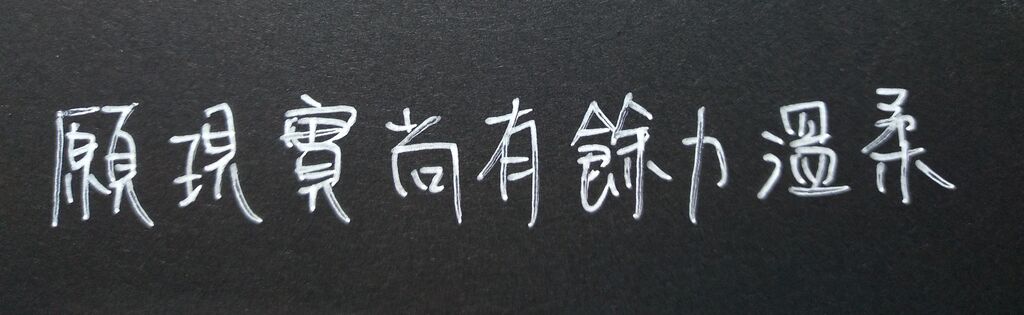 願現實尚有餘力溫柔